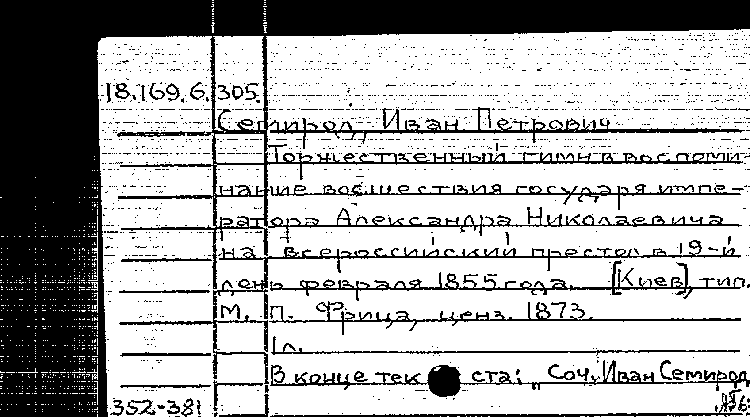 18.169.6.305.
Семирод, Иван Петрович
Торжественный гимн в воспоми-
нание возшествия государя импе-
ратора Александра Николаевича
на всероссийский престол в 19-й
день февраля 1855 года. [Киев], тип.
М. П. Фрица, ценз. 1873.
1 л.
В конце текста: „Соч. Иван Семирод
352-381